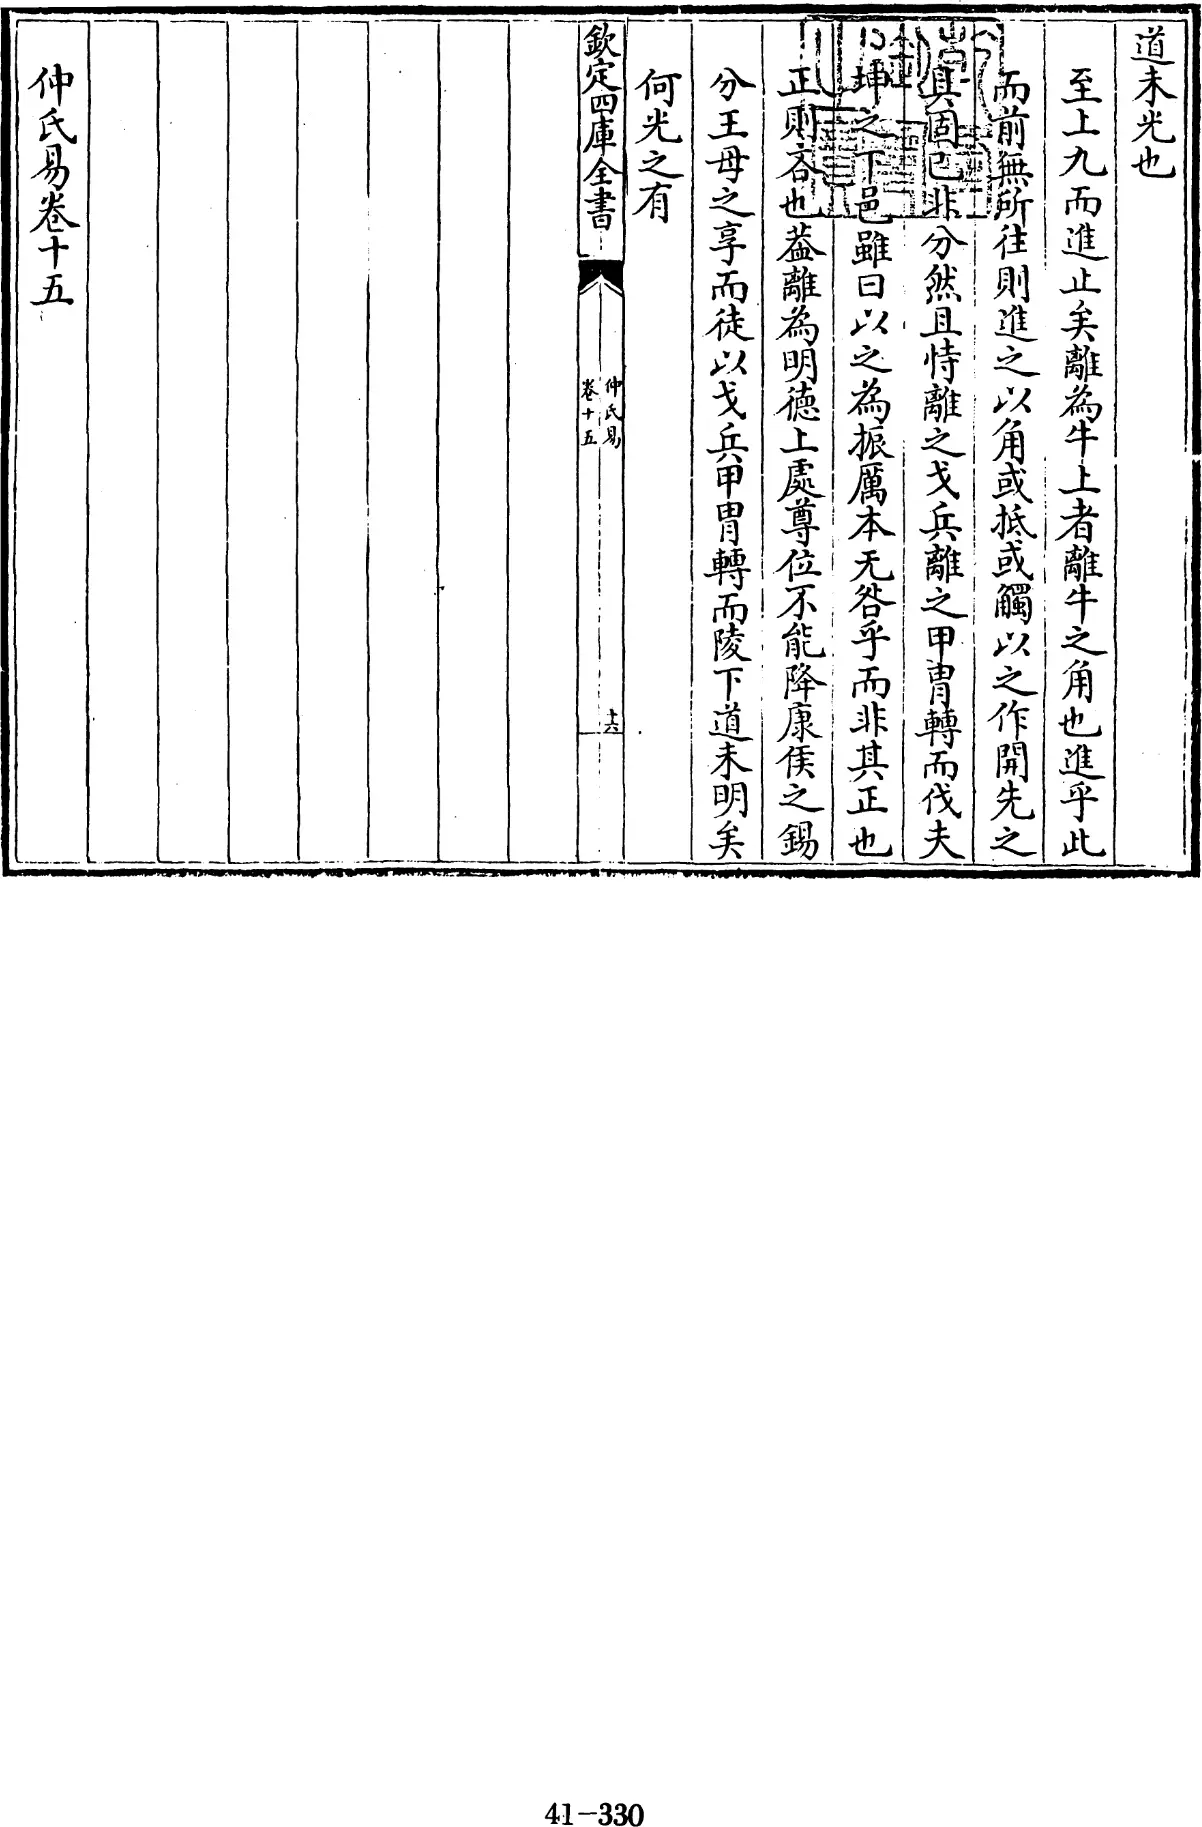 道未光也
至上九而進止矣離為牛上者離牛之角也進乎此
而前無所往則進之以角或抵或觸以之作開先之
具固已非分然且恃離之戈兵離之甲胄轉而伐夫
坤之下邑雖曰以之為振厲本无咎乎而非其正也
正則吝也葢離為明德上處尊位不能降康侯之錫
分王母之享而徒以戈兵甲胄轉而陵下道未明矣
何光之有
欽定四庫全書
仲氏易
卷十五
十六
仲氏易卷十五
41-330